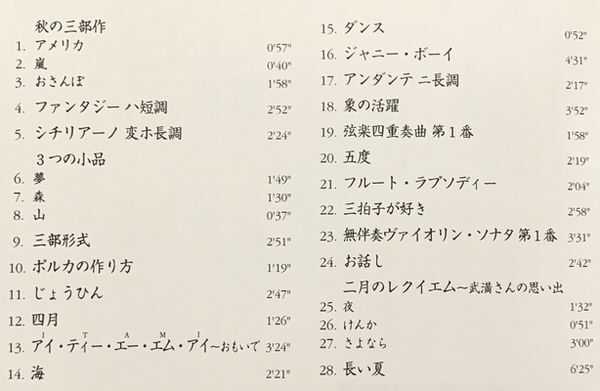 秋の三部作
1. アメリカ 0'57"
2. 嵐 0'40"
3. おさんぽ 1'58"
4. ファンタジー ハ短調 2'52"
5. シチリアーノ 変ホ長調 2'24"
3つの小品
6. 夢 1'49"
7. 森 1'30"
8. 山 0'37"
9. 三部形式 2'51"
10. ポルカの作り方 1'19"
11. じょうひん 2'47"
12. 四月 1'26"
I T A M I
13. アイ・ティー・エー・エム・アイ〜おもいで 3'24"
14. 海 2'21"
15. ダンス 0'52"
16. ジャニー・ボーイ 4'31"
17. アンダンテ ニ長調 2'17"
18. 象の活躍 3'52"
19. 弦楽四重奏曲 第1番 1'58"
20. 五度 2'19"
21. フルート・ラプソディー 2'04"
22. 三拍子が好き 2'58"
23. 無伴奏ヴァイオリン・ソナタ 第1番 3'31"
24. お話し 2'42"
二月のレクイエム〜武満さんの思い出
25. 夜 1'32"
26. けんか 0'51"
27. さよなら 3'00"
28. 長い夏 6'25"